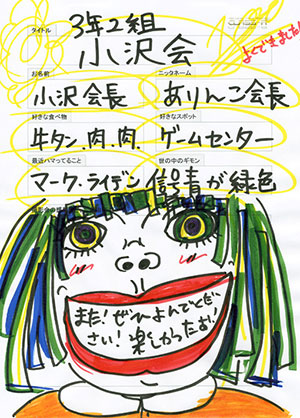 タイトル
3年2組
小沢会
よくできました!
お名前
ニックネーム
小沢会長
ありんこ会長
好きな食べ物
好きなスポット
牛タン.肉.肉.
ゲームセンター
最近ハマってること
世の中のギモン
マーク.ライデン
信号青が緑色
また!ぜひよんでくだ
さい!楽しかったお!